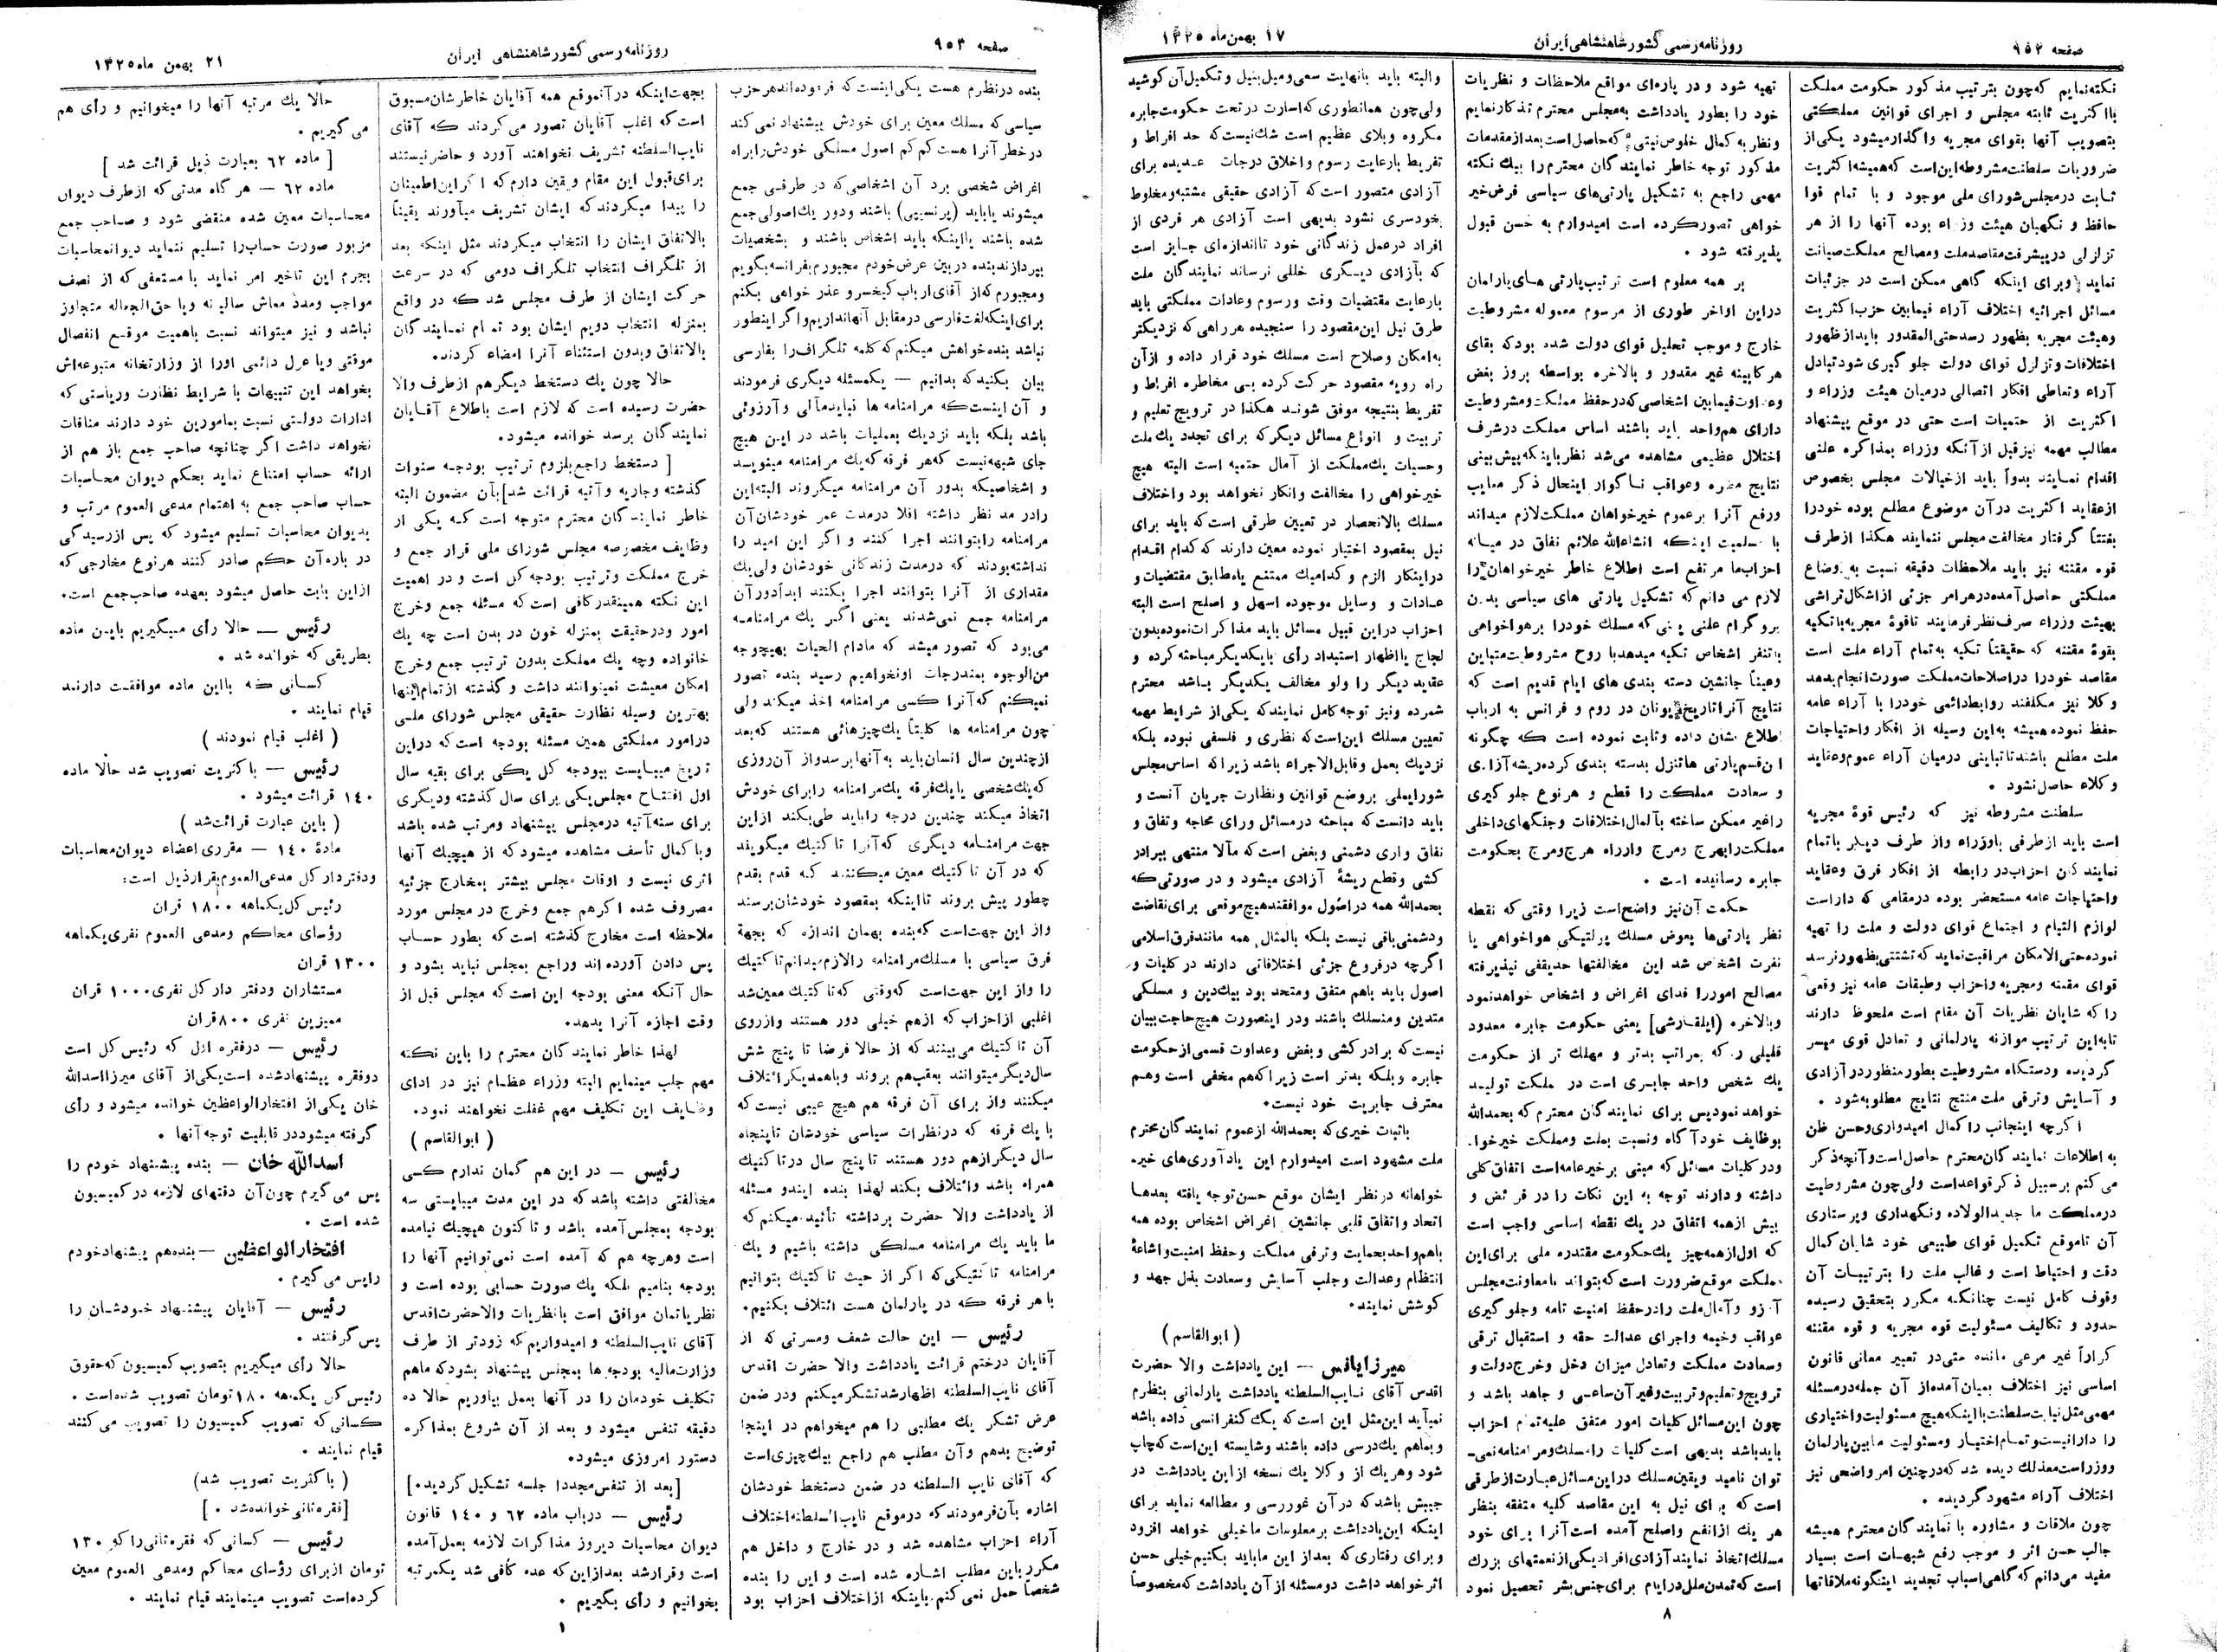 صفحه ۹۵۲
روزنامه رسمی کشور شاهنشاهی ایران
۱۷ بهمن ماه ۱۳۲۵
نکته نمایم که چون بترتیب مذکور حکومت مملکت
بااکثریت ثابته مجلس و اجرای قوانین مملکتی
بتصویب آنها بقوای مجریه واگذار میشود یکی از
ضروریات سلطنت مشروطه این است که همیشه اکثریت
ثابت در مجلس شورای ملی موجود و با تمام قوا
حافظ و نگهبان هیئت وزراء بوده آنها را از هر
تزلزلی در پیشرفت مقاصد ملت و مصالح مملکت صیانت
نماید و برای اینکه گاهی ممکن است در جزئیات
مسائل اجرائیه اختلاف آراء فیمابین حزب اکثریت
وهیئت مجریه بظهور رسد حتی المقدور باید از ظهور
اختلافات و تزلزل قوای دولت جلوگیری شود تبادل
آراء و تعاطی افکار اتصالی درمیان هیئت وزراء و
اکثریت از حتمیات است حتی در موقع پیشنهاد
مطالب مهمه نیز قبل از آنکه وزراء بمذاکره علنی
اقدام نمایند بدواً باید از خیالات مجلس بخصوص
از عقاید اکثریت در آن موضوع مطلع بوده خود را
بغتتاً گرفتار مخالفت مجلس ننمایند هکذا از طرف
قوه مقننه نیز باید ملاحظات دقیقه نسبت به اوضاع
مملکتی حاصل آمده در هر امر جزئی از اشکال تراشی
بهیئت وزراء صرف نظر فرمایند تا قوهٔ مجریه باتکیه
بقوهٔ مقننه که حقیقتاً تکیه به تمام آراء ملت است
مقاصد خود را در اصلاحات مملکت صورت انجام بدهد
وکلا نیز مکلفند روابط دائمی خود را با آراء عامه
حفظ نموده همیشه به این وسیله از افکار واحتیاجات
ملت مطلع باشند تا تباینی درمیان آراء عموم و عقاید
وکلاء حاصل نشود .
سلطنت مشروطه نیز که رئیس قوهٔ مجریه
است باید از طرفی باوزراء واز طرف دیگر باتمام
نمایندگان احزاب در رابطه از افکار فرق و عقاید
واحتیاجات عامه مستحضر بوده درمقامی که داراست
لوازم التیام و اجتماع قوای دولت و ملت را تهیه
نموده حتی الامکان مراقبت نماید که تشتتی بظهور نرسد
قوای مقننه ومجریه واحزاب وطبقات عامه نیز وقعی
را که شایان نظریات آن مقام است ملحوظ دارند
تا به این ترتیب موازنه پارلمانی و تعادل قوی میسر
گردیده ودستگاه مشروطیت بطور منظور در آزادی
و آسایش وترقی ملت منتج نتایج مطلوبه شود .
اگرچه اینجانب را کمال امیدواری وحسن ظن
به اطلاعات نمایندگان محترم حاصل است و آنچه ذکر
می کنم بر سبیل ذکر قواعد است ولی چون مشروطیت
درمملکت ما جدید الولاده ونگهداری و پرستاری
آن تا موقع تکمیل قوای طبیعی خود شایان کمال
دقت و احتیاط است و غالب ملت را بترتیبات آن
وقوف کامل نیست چنانکه مکرر بتحقیق رسیده
حدود و تکالیف مسئولیت قوه مجریه و قوه مقننه
کراراً غیر مرعی مانده حتی در تعبیر معانی قانون
اساسی نیز اختلاف بمیان آمده از آن جمله درمسئله
مهمی مثل نیابت سلطنت با اینکه هیچ مسئولیت واختیاری
را دارا نیست وتمام اختیار ومسئولیت مابین پارلمان
ووزراست معذلك دیده شد که درچنین امر واضحی نیز
اختلاف آراء مشهود گردیده .
چون ملاقات و مشاوره با نمایندگان محترم همیشه
جالب حسن اثر و موجب رفع شبهات است بسیار
مفید می دانم که گاهی اسباب تجدید اینگونه ملاقاتها
تهیه شود و در پاره ای مواقع ملاحظات و نظریات
خود را بطور یادداشت به مجلس محترم تذکار نمایم
ونظر به کمال خلوص نیتی که حاصل است بعد از مقدمات
مذکور توجه خاطر نمایندگان محترم را بیك نکته
مهمی راجع به تشکیل پارتی های سیاسی فرض خیر
خواهی تصور کرده است امیدوارم به حسن قبول
پذیرفته شود .
بر همه معلوم است ترتیب پارتی های پارلمان
دراین اواخر طوری از مرسوم معموله مشروطیت
خارج و موجب تحلیل قوای دولت شده بود که بقای
هر کابینه غیر مقدور و بالاخره بواسطه بروز بغض
وعداوت فیمابین اشخاصی که در حفظ مملکت و مشروطیت
دارای هم واحد باید باشند اساس مملکت درشرف
اختلال عظیمی مشاهده می شد نظر باینکه پیش بینی
نتایج مضره وعواقب ناگوار اینحال ذکر معایب
ورفع آنرا بر عموم خیرخواهان مملکت لازم میداند
با سلمیت اینکه انشاءالله علائم نفاق در میانه
احزاب ما مرتفع است اطلاع خاطر خیرخواهان را
لازم می دانم که تشکیل پارتی های سیاسی بدون
پروگرام علنی یعنی که مسلك خود را بر هواخواهی
یا تنفر اشخاص تکیه میدهد با روح مشروطیت متباین
وعیناً جانشین دسته بندی های ایام قدیم است که
نتایج آنرا تاریخ یونان در روم و فرانس به ارباب
اطلاع نشان داده وثابت نموده است که چگونه
این قسم پارتی ها تنزل بدسته بندی کرده ریشه آزادی
و سعادت مملکت را قطع و هر نوع جلوگیری
را غیر ممکن ساخته بآلمال اختلافات وجنگهای داخلی
مملکت را بهرج ومرج وازراه هرج ومرج بحکومت
جابره رسانیده است .
حکمت آن نیز واضح است زیرا وقتی که نقطه
نظر پارتی ها بعوض مسلك پولتیکی هواخواهی یا
نفرت اشخاص شد این مخالفتها حدیقفی نپذیرفته
مصالح امور را فدای اغراض و اشخاص خواهد نمود
وبالاخره (ایلقارشی] یعنی حکومت جابره معدود
قلیلی را که بمراتب بدتر و مهلك تر از حکومت
یك شخص واحد جابری است در مملکت تولید
خواهد نمود پس برای نمایندگان محترم که بحمدالله
بوظایف خود آگاه ونسبت بملت ومملکت خیرخواه
ودر کلیات مسائل که مبنی بر خیر عامه است اتفاق کلی
داشته و دارند توجه به این نکات را در فرائض و
بیش از همه اتفاق در یك نقطه اساسی واجب است
که اول از همه چیز یك حکومت مقتدره ملی برای این
مملکت موقع ضرورت است که بتواند بامعاونت مجلس
آرزو وآمال ملت را در حفظ امنیت تامه وجلوگیری
عواقب وخیمه واجرای عدالت حقه و استقبال ترقی
وسعادت مملکت وتعادل میزان دخل وخرج دولت و
ترویج وتعلیم وتربیت وغیر آن ساعی و جاهد باشد و
چون این مسائل کلیات امور متفق علیه تمام احزاب
باید باشد بدیهی است کلیات را مسلك ومرامنامه نمی‌
توان نامید وبقین مسلك دراین مسائل عبارت از طرقی
است که برای نیل به این مقاصد کلیه متفقه بنظر
هر یك از انفع واصلح آمده است آنرا برای خود
مسلك اتخاذ نمایند آزادی افراد یکی از نعمتهای بزرك
است که تمدن ملل در ایام برای جنس بشر تحصیل نمود
والبته باید بانهایت سعی ومیل بنیل وتکمیل آن کوشید
ولی چون همانطوری که اسارت در تحت حکومت جابره
مکروه وبلای عظیم است شك نیست که حد افراط و
تفریط بارعایت رسوم واخلاق درجات عدیده برای
آزادی متصور است که آزادی حقیقی مشتبه ومخلوط
بخودسری نشود بدیهی است آزادی هر فردی از
افراد درعمل زندگانی خود تااندازه ای جایز است
که بآزادی دیگری خللی نرساند نمایندگان ملت
بارعایت مقتضیات وقت ورسوم وعادات مملکتی باید
طرق نیل این مقصود را سنجیده هر راهی که نزدیکتر
به امکان وصلاح است مسلك خود قرار داده و از آن
راه رو به مقصود حرکت کرده بی مخاطره افراط و
تفریط بنتیجه موفق شوند هکذا در ترویج تعلیم و
تربیت و انواع مسائل دیگر که برای تجدد یك ملت
وحسیات یك مملکت از آمال حتمیه است البته هیچ
خیرخواهی را مخالفت وانکار نخواهد بود واختلاف
مسلك بالانحصار در تعیین طرقی است که باید برای
نیل بمقصود اختیار نموده معین دارند که کدام اقدام
در ابتکار الزم وکدامیك ممتنع یا مطابق مقتضیات و
عادات و وسایل موجوده اسهل و اصلح است البته
احزاب دراین قبیل مسائل باید مذاکرات نموده بدون
لجاج یا اظهار استبداد رأی بایکدیگر مباحثه کرده و
عقاید دیگر را ولو مخالف یکدیگر باشد محترم
شمرده ونیز توجه کامل نمایند که یکی از شرایط مهمه
تعیین مسلك این است که نظری و فلسفی نبوده بلکه
نزدیك بعمل وقابل الاجراء باشد زیرا که اساس مجلس
شورایملی بروضع قوانین ونظارت جریان آنست و
باید دانست که مباحثه درمسائل ورای محاجه وتفاق و
نفاق واری دشمنی وبغض است که مآلا منتهی ببرادر
کشی وقطع ریشهٔ آزادی میشود و در صورتی که
بحمدالله همه دراصول موافقند هیچ موقعی برای نقاضت
ودشمنی باقی نیست بلکه بالمثال همه مانند فرق اسلامی
اگرچه در فروع جزئی اختلافاتی دارند در کلیات و
اصول باید باهم متفق ومتحد بود بیك دین و مسلکی
متدین ومنسلك باشند ودر اینصورت هیچ حاجت ببیان
نیست که برادرکشی و بغض وعداوت قسمی از حکومت
جابره وبلکه بدتر است زیرا که هم مخفی است وهم
معترف جابریت خود نیست.
باثبات خیری که بحمدالله از عموم نمایندگان محترم
ملت مشهود است امیدوارم این یادآوری های خیر
خواهانه در نظر ایشان موقع حسن توجه یافته بعدها
اتحاد واتفاق قلبی جانشین اغراض اشخاص بوده همه
باهم واحد بحمایت وترقی مملکت وحفظ امنیت واشاعهٔ
انتظام وعدالت وجلب آسایش وسعادت بذل جهد و
کوشش نمایند.
( ابوالقاسم )
میرزایانس — این یادداشت والا حضرت
اقدس آقای نایب السلطنه یادداشت پارلمانی بنظرم
نمیآید این مثل این است که یك کنفرانسی داده باشد
وبماهم یك درسی داده باشند وشایسته این است که چاپ
شود وهر یك از وکلا یك نسخه از این یادداشت در
جیبش باشد که در آن غوررسی و مطالعه نماید برای
اینکه این یادداشت بر معلومات ما خیلی خواهد افزود
وبرای رفتاری که بعد از این ما باید بکنیم خیلی حسن
اثر خواهد داشت دو مسئله از آن یادداشت که مخصوصاً
۸
صفحه ۹۵۳
روزنامه رسمی کشور شاهنشاهی ایران
۲۱ بهمن ماه ۱۳۲۵
بنده درنظرم هست یکی اینست که فرموده اند هر حزب
سیاسی که مسلك معین برای خودش پیشنهاد نمی کند
درخطر آنرا هست کم کم اصول مسلکی خودش را براه
اغراض شخصی برد آن اشخاصی که در طرفی جمع
میشوند یا باید (پرنسیپی) باشند ودور یك اصولی جمع
شده باشند یا اینکه باید اشخاص باشند و بشخصیات
بپردازند بنده دربین عرض خودم مجبورم بفرانسه بگویم
ومجبورم که از آقای ارباب کیخسرو عذر خواهی بکنم
برای اینکه لغت فارسی درمقابل آنها نداریم واگر اینطور
نباشد بنده خواهش میکنم که کلمه تلگراف را بفارسی
بیان بکنید که بدانیم — یکمسئله دیگری فرمودند
و آن اینست که مرامنامه ها نباید مآلی وآرزوئی
باشد بلکه باید نزدیك بعملیات باشد در این هیچ
جای شبهه نیست که هر فرقه که یك مرامنامه مینویسد
و اشخاصیکه بدور آن مرامنامه میگروند البته این
را در مد نظر داشته اقلا درمدت عمر خودشان آن
مرامنامه را بتوانند اجرا کنند و اگر این امید را
نداشته بودند که درمدت زندگانی خودشان ولی یك
مقداری از آنرا بتوانند اجرا بکنند ابداً دور آن
مرامنامه جمع نمی شدند یعنی اگر یك مرامنامه
می بود که تصور میشد که مادام الحیات بهیچوجه
من الوجوه بمندرجات او نخواهیم رسید بنده تصور
نمیکنم که آنرا کسی مرامنامه اخذ میکند ولی
چون مرامنامه ها کلیتاً یك چیزهائی هستند که بعد
از چندین سال انسان باید به آنها برسد واز آن روزی
که یك شخصی یا یك فرقه یك مرامنامه را برای خودش
اتخاذ میکند چندین درجه را باید طی بکند از این
جهت مرامنامه دیگری که آنرا تاکتیك میگویند
که در آن تاکتیك معین میکنند که قدم بقدم
چطور پیش بروند تا اینکه بمقصود خودشان برسند
واز این جهت است که بنده بهمان اندازه که بجهة
فرق سیاسی با مسلك مرامنامه را لازم میدانم تاکتیك
را واز این جهت است که وقتی که تاکتیك معین شد
اغلبی از احزاب که از هم خیلی دور هستند وازروی
آن تاکتیك می بینند که از حالا فرضا تا پنج شش
سال دیگر میتوانند بعقب هم بروند وباهمدیگر ائتلاف
میکنند واز برای آن فرقه هم هیچ عیبی نیست که
با یك فرقه که درنظرات سیاسی خودشان تا پنجاه
سال دیگر از هم دور هستند تا پنج سال در تاکتیك
همراه باشد وائتلاف بکند لهذا بنده ایندو مسئله
از یادداشت والا حضرت برداشته تأئید میکنم که
ما باید یك مرامنامه مسلکی داشته باشیم و یك
مرامنامه تاکتیکی که اگر از حیث تاکتیك بتوانیم
با هر فرقه که در پارلمان هست ائتلاف بکنیم.
رئیس — این حالت شعف ومسرتی که از
آقایان درختم قرائت یادداشت والا حضرت اقدس
آقای نایب السلطنه اظهار شد تشکر میکنم ودر ضمن
عرض تشکر یك مطلبی را هم میخواهم در اینجا
توضیح بدهم وآن مطلب هم راجع بیك چیزی است
که آقای نایب السلطنه در ضمن دستخط خودشان
اشاره بآن فرمودند که درموقع نایب السلطنه اختلاف
آراء احزاب مشاهده شد و در خارج و داخل هم
مکرر باین مطلب اشاره شده است و این را بنده
شخصاً حمل نمی کنم باینکه از اختلاف احزاب بود
بجهت اینکه در آنموقع همه آقایان خاطرشان مسبوق
است که اغلب آقایان تصور می کردند که آقای
نایب السلطنه تشریف نخواهند آورد و حاضر نیستند
برای قبول این مقام ویقین دارم که اگر این اطمینان
را پیدا میکردند که ایشان تشریف میآورند یقیناً
بالاتفاق ایشان را انتخاب میکردند مثل اینکه بعد
از تلگراف انتخاب تلگراف دومی که در سرعت
حرکت ایشان از طرف مجلس شد که در واقع
بمنزله انتخاب دویم ایشان بود تمام نمایندگان
بالاتفاق وبدون استثناء آنرا امضاء کردند.
حالا چون یك دستخط دیگر هم از طرف والا
حضرت رسیده است که لازم است باطلاع آقایان
نمایندگان برسد خوانده میشود.
[ دستخط راجع بلزوم ترتیب بودجه سنوات
گذشته وجاریه وآتیه قرائت شد] بآن مضمون البته
خاطر نمایندگان محترم متوجه است که یکی از
وظایف مخصوصه مجلس شورای ملی قرار جمع و
خرج مملکت وترتیب بودجه کل است و در اهمیت
این نکته همینقدر کافی است که مسئله جمع وخرج
امور ودرحقیقت بمنزله خون در بدن است چه یك
خانواده وچه یك مملکت بدون ترتیب جمع وخرج
امکان معیشت نمیتوانند داشت وگذشته از تمام اینها
بهترین وسیله نظارت حقیقی مجلس شورای ملی
درامور مملکتی همین مسئله بودجه است که دراین
تاریخ میبایست ببودجه کل یکی برای بقیه سال
اول افتتاح مجلس یکی برای سال گذشته ودیگری
برای سنه آتیه درمجلس پیشنهاد ومرتب شده باشد
وبا کمال تأسف مشاهده میشود که از هیچیك آنها
اثری نیست و اوقات مجلس بیشتر بمخارج جزئیه
مصروف شده اگرهم جمع وخرج در مجلس مورد
ملاحظه است مخارج گذشته است که بطور حساب
پس دادن آورده اند وراجع بمجلس نباید بشود و
حال آنکه معنی بودجه این است که مجلس قبل از
وقت اجازه آنرا بدهد.
لهذا خاطر نمایندگان محترم را باین نکته
مهم جلب مینمایم البته وزراء عظام نیز در ادای
وظایف این تکلیف مهم غفلت نخواهند نمود.
( ابوالقاسم )
رئیس — در این هم گمان ندارم کسی
مخالفتی داشته باشد که در این مدت میبایستی سه
بودجه بمجلس آمده باشد و تاکنون هیچیك نیامده
است وهرچه هم که آمده است نمی توانیم آنها را
بودجه بنامیم بلکه یك صورت حسابی بوده است و
نظریاتمان موافق است بانظریات والا حضرت اقدس
آقای نایب السلطنه و امیدواریم که زودتر از طرف
وزارت مالیه بودجه ها بمجلس پیشنهاد بشود که ماهم
تکلیف خودمان را در آنها بعمل بیاوریم حالا ده
دقیقه تنفس میشود و بعد از آن شروع بمذاکره
دستور امروزی میشود.
[بعد از تنفس مجددا جلسه تشکیل گردیده]
رئیس — درباب ماده ۶۲ و ۱۴۰ قانون
دیوان محاسبات دیروز مذاکرات لازمه بعمل آمده
است وقرار شد بعد از این که عده کافی شد یکمرتبه
بخوانیم و رأی بگیریم .
حالا یك مرتبه آنها را میخوانیم و رأی هم
می گیریم .
[ ماده ۶۲ بعبارت ذیل قرائت شد ]
ماده ۶۲ — هر گاه مدتی که از طرف دیوان
محاسبات معین شده منقضی شود و صاحب جمع
مزبور صورت حساب را تسلیم ننماید دیوان محاسبات
بجرم این تاخیر امر نماید با مستعفی که از نصف
مواجب ومدد معاش سالیانه ویا حق الجماله متجاوز
نباشد و نیز میتواند نسبت باهمیت موقع انفصال
موقتی ویا عزل دائمی اورا از وزارتخانه متبوعه اش
بخواهد این تنبیهات با شرایط نظارت وریاستی که
ادارات دولتی نسبت بمامورین خود دارند منافات
نخواهد داشت اگر چنانچه صاحب جمع باز هم از
ارائه حساب امتناع نماید بحکم دیوان محاسبات
حساب صاحب جمع به اهتمام مدعی العموم مرتب و
بدیوان محاسبات تسلیم میشود که پس از رسیدگی
در باره آن حکم صادر کنند هرنوع مخارجی که
از این بابت حاصل میشود بعهده صاحب جمع است.
رئیس — حالا رأی میگیریم باین ماده
بطریقی که خوانده شد .
کسانی که بااین ماده موافقت دارند
قیام نمایند .
( اغلب قیام نمودند )
رئیس — با کثریت تصویب شد حالا ماده
۱۴۰ قرائت میشود .
( باین عبارت قرائت شد )
مادهٔ ۱۴۰ — مقرری اعضاء دیوان محاسبات
ودفتردار کل مدعی العموم بقرار ذیل است:
رئیس کل یکماهه ۱۸۰۰ قران
رؤسای محاکم ومدعی العموم نفری یکماهه
۱۳۰۰ قران
مستشاران ودفتر دار کل نفری ۱۰۰۰ قران
ممیزین نفری ۸۰۰ قران
رئیس — درفقره اول که رئیس کل است
دوفقره پیشنهاد شده است یکی از آقای میرزا اسدالله
خان یکی از افتخار الواعظین خوانده میشود و رأی
گرفته میشود در قابلیت توجه آنها .
اسدالله خان — بنده پیشنهاد خودم را
پس می گیرم چون آن دقتهای لازمه در کمیسیون
شده است .
افتخار الواعظین — بنده هم پیشنهاد خودم
را پس می گیرم .
رئیس — آقایان پیشنهاد خودشان را
پس گرفتند .
حالا رأی میگیریم بتصویب کمیسیون که حقوق
رئیس کل یکماهه ۱۸۰ تومان تصویب شده است .
کسانی که تصویب کمیسیون را تصویب می کنند
قیام نمایند .
( با کثریت تصویب شد)
[فقره ثانی خوانده شد . ]
رئیس — کسانی که فقره ثانی را که ۱۳۰
تومان از برای رؤسای محاکم ومدعی العموم معین
کرده است تصویب مینمایند قیام نمایند .
۱